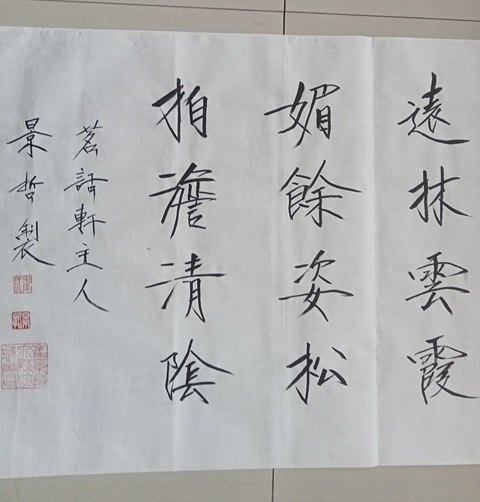 遠林雲霞
媚餘姿松
柏澹清陰
茗話軒主人
景哲製